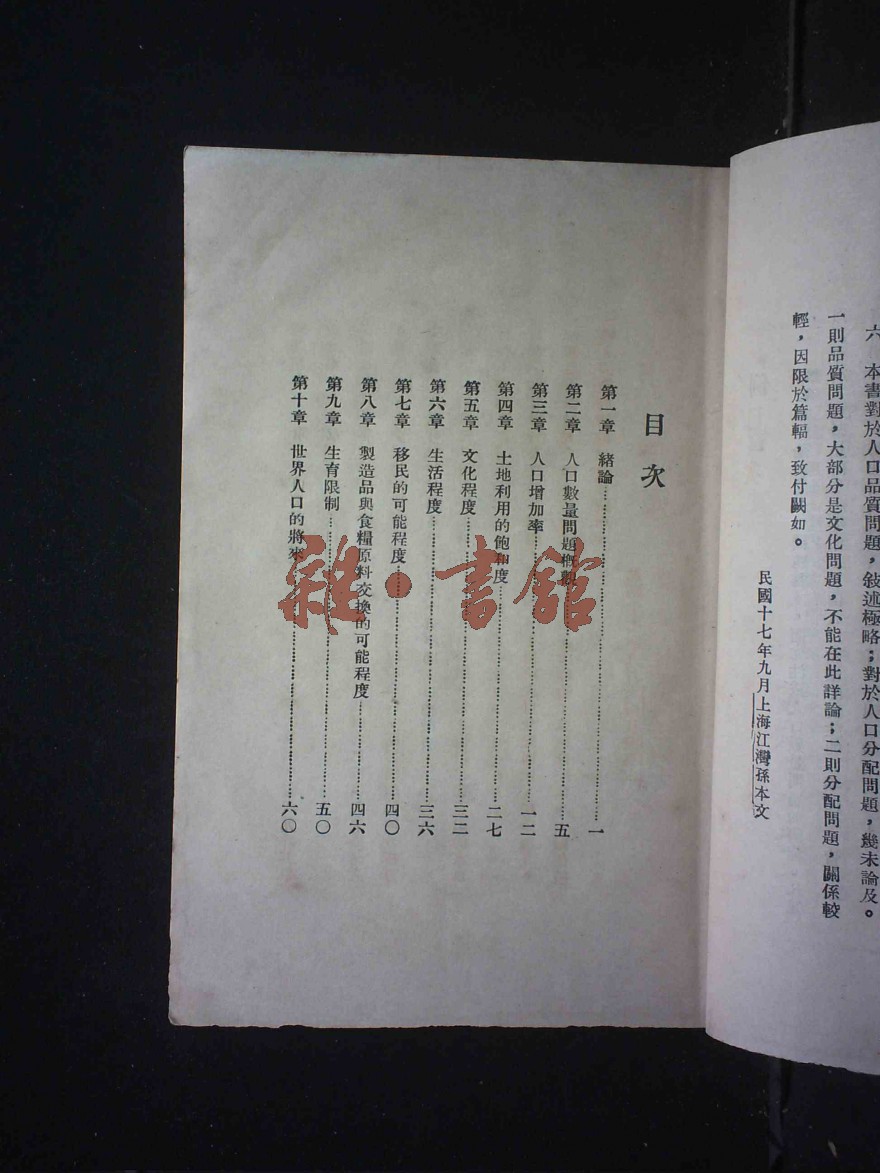 六　本書對於人口品質問題，敍述極略；對於人口分配問題，幾未論及。
一則品質問題，大部分是文化問題，不能在此詳論；二則分配問題，關係較
輕，因限於篇幅，致付闕如。
民國十七年九月上海江灣孫本文
目次
第一章　緒論……一
第二章　人口數量問題概觀……五
第三章　人口增加率……一二
第四章　土地利用的飽和度……二七
第五章　文化程度……三二
第六章　生活程度……三六
第七章　移民的可能程度……四〇
第八章　製造品與食糧原料交換的可能程度……四六
第九章　生育限制……五〇
第十章　世界人口的將來……六〇
雜·書館